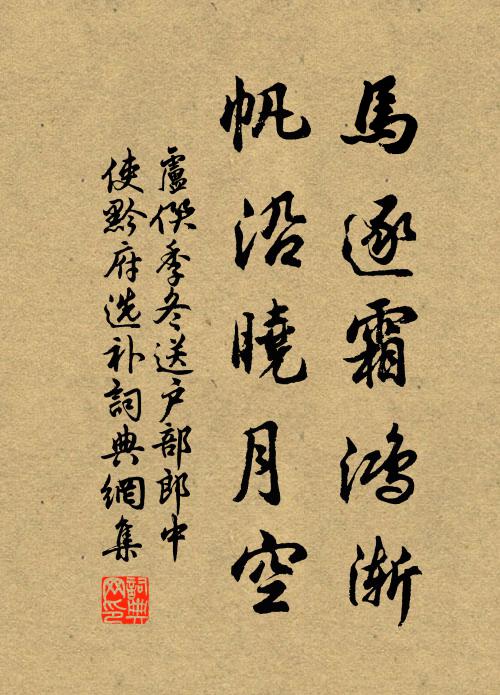 馬逐霜鴻漸
帆沿曉月空
盧僎季冬送户部郎中
使黔府选补詞典網集
詞典网印